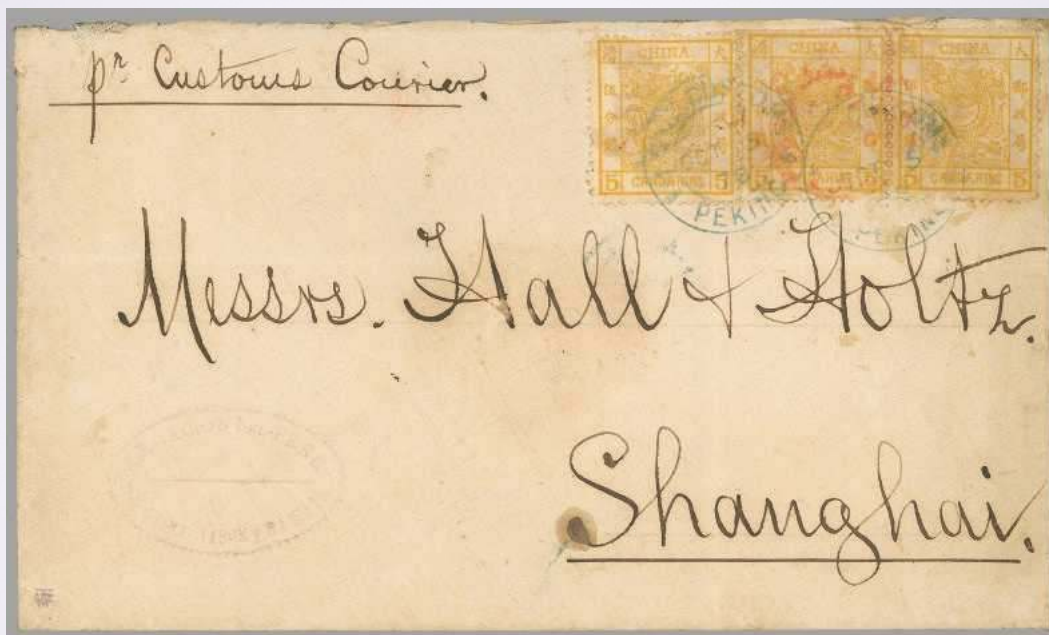 pr Customs Courier.
CHINA CHINA CHINA
5 CANDARINS 5 5 5 5 CANDARINS 5
PEKING
5
Messrs. Hall & Holtz.
Shanghai.